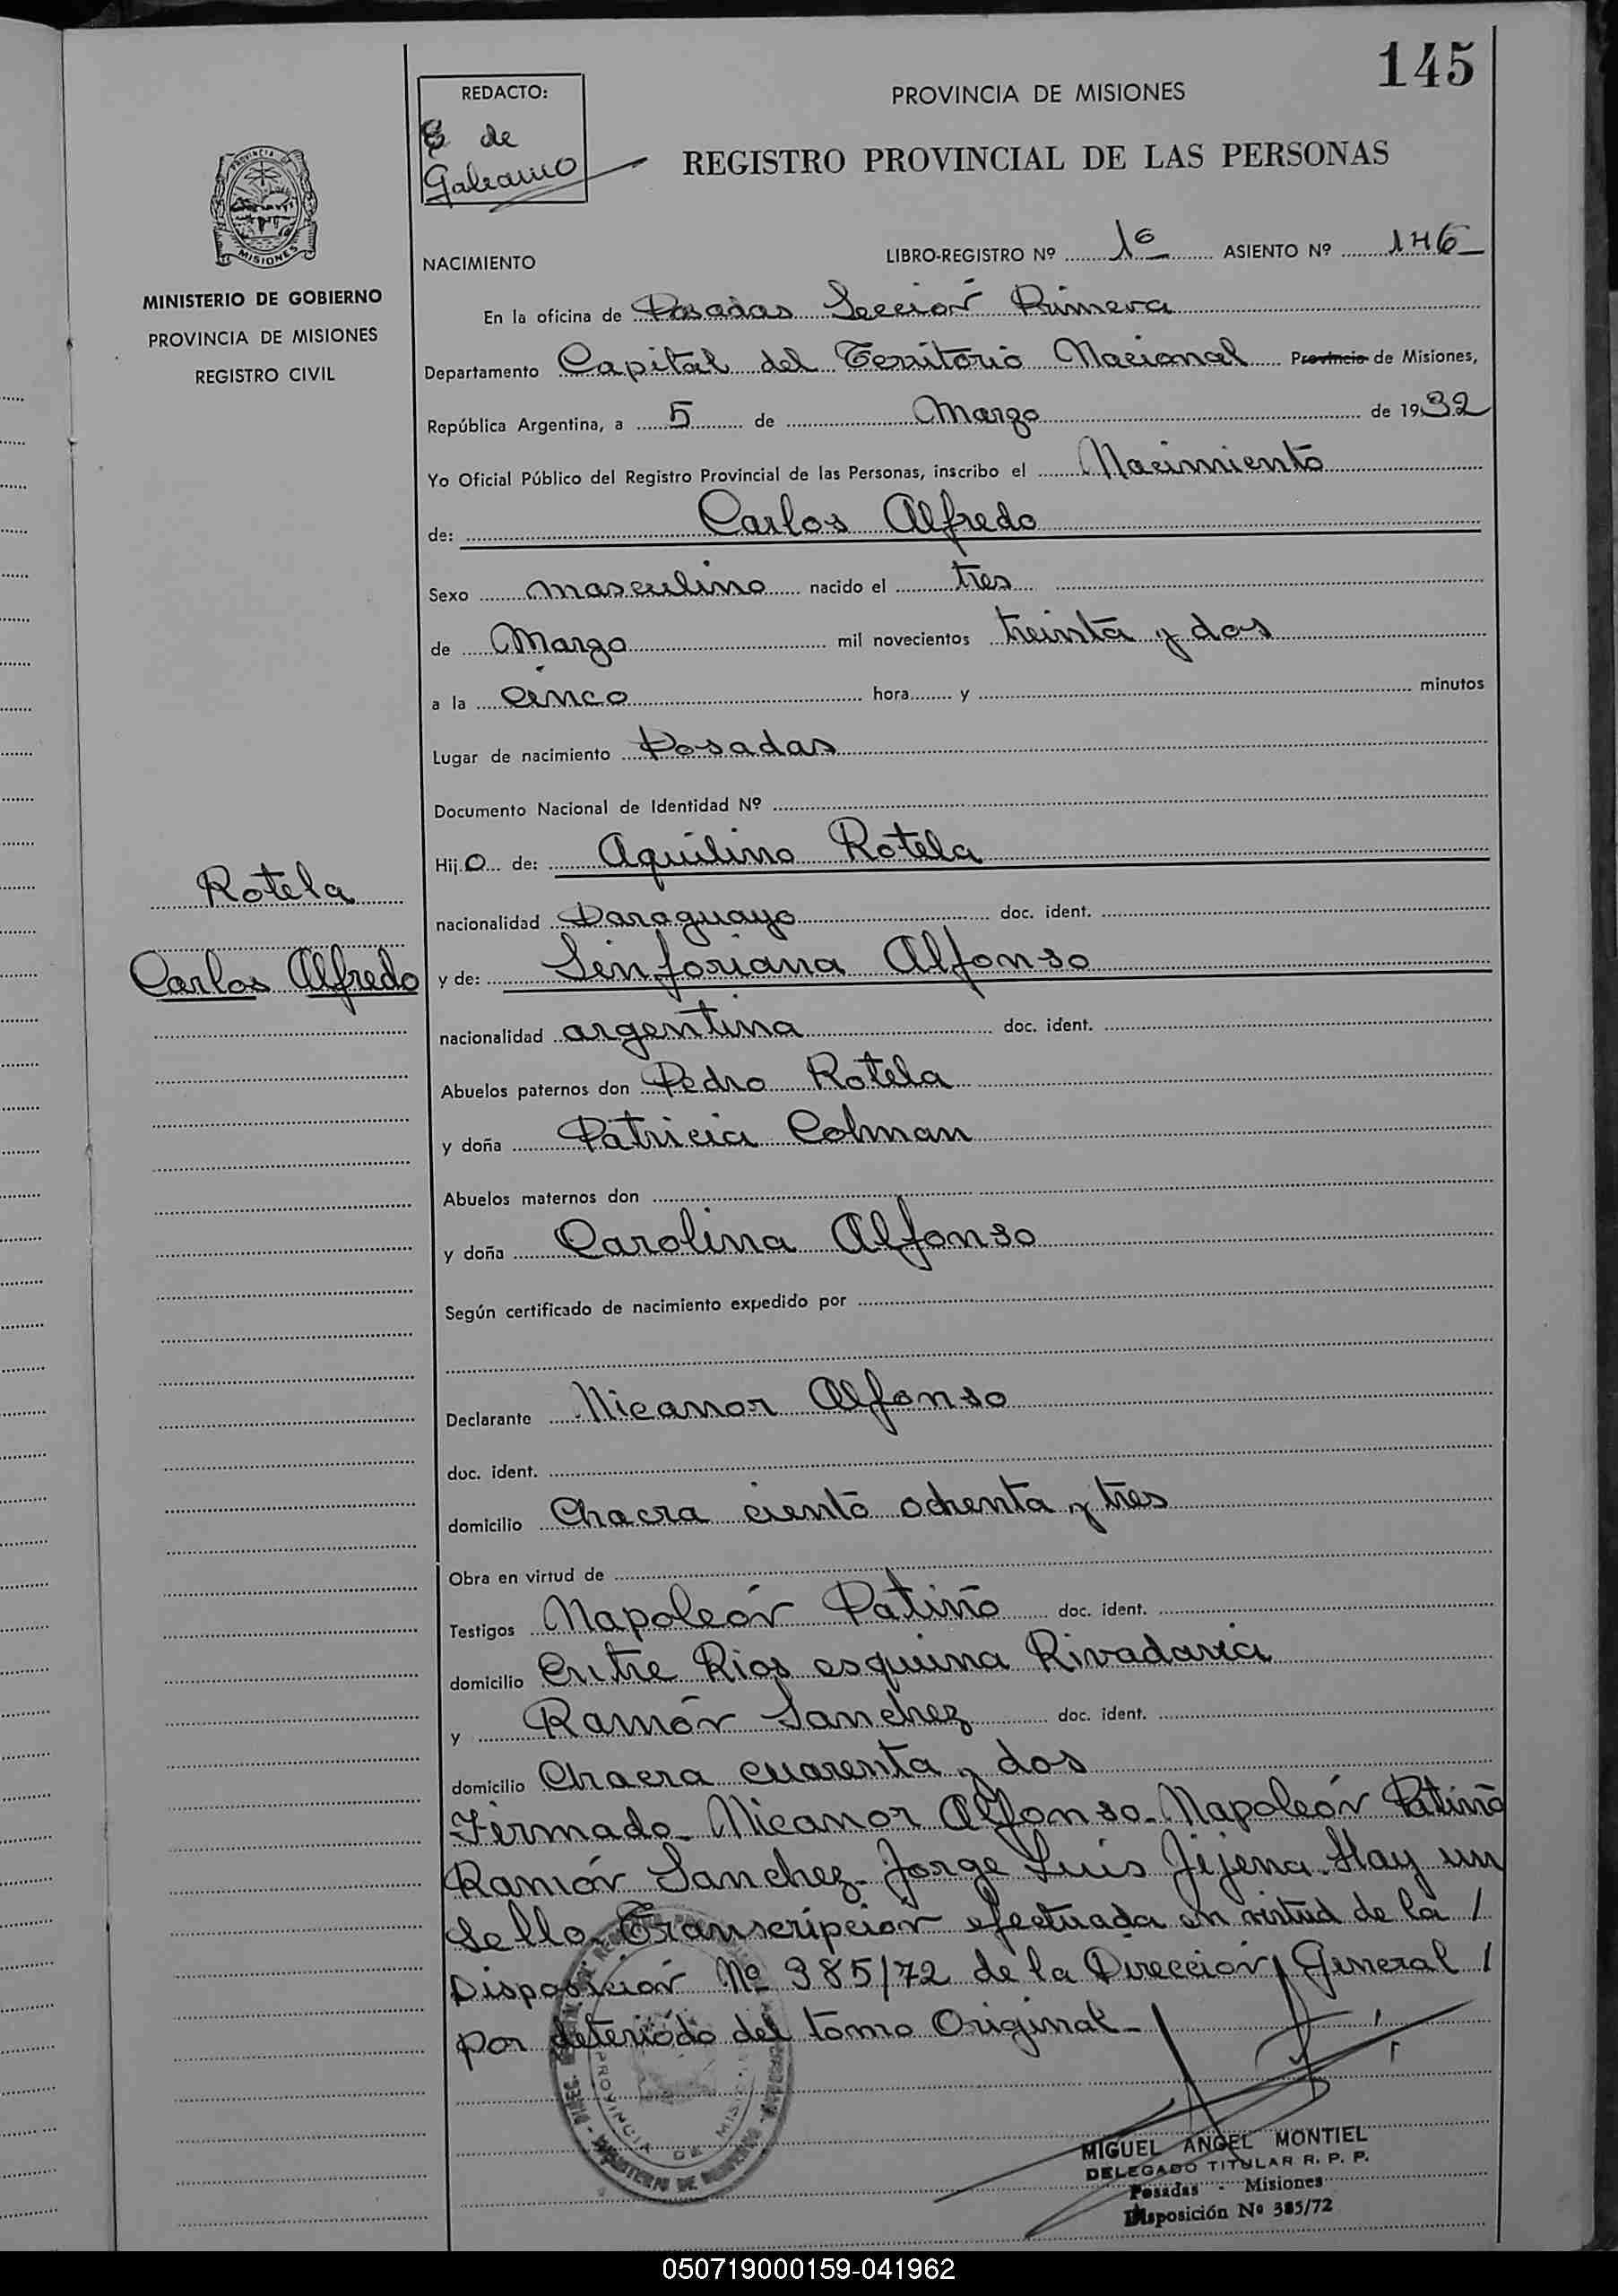 145
REDACTO:
de
Galeano
PROVINCIA DE MISIONES
REGISTRO PROVINCIAL DE LAS PERSONAS
PROVINCIA DE
MISIONES
MINISTERIO DE GOBIERNO
PROVINCIA DE MISIONES
REGISTRO CIVIL
NACIMIENTO
LIBRO-REGISTRO Nº 1º ASIENTO Nº 146
En la oficina de Posadas Sección Primera
Departamento Capital del Territorio Nacional Provincia de Misiones,
República Argentina, a 5 de Marzo de 1932
Yo Oficial Público del Registro Provincial de las Personas, inscribo el Nacimiento
de: Carlos Alfredo
Sexo masculino nacido el tres
de Marzo mil novecientos treinta y dos
a la cinco hora y minutos
Lugar de nacimiento Posadas
Documento Nacional de Identidad Nº
Hijo de: Aquilino Rotela
Rotela
nacionalidad Paraguayo doc. ident.
Carlos Alfredo
y de: Sinforiana Alfonso
nacionalidad argentina doc. ident.
Abuelos paternos don Pedro Rotela
y doña Patricia Colman
Abuelos maternos don
y doña Carolina Alfonso
Según certificado de nacimiento expedido por
Declarante Nicanor Alfonso
doc. ident.
domicilio Chacra ciento ochenta y tres
Obra en virtud de
Testigos Napoleón Patiño doc. ident.
domicilio Entre Rios esquina Rivadavia
y Ramón Sanchez doc. ident.
domicilio Chacra cuarenta y dos
Firmado. Nicanor Alfonso. Napoleón Patiño
Ramón Sanchez. Jorge Luis Jijena. Hay un
sello. Transcripción efectuada en virtud de la /
Disposición Nº 385/72 de la Dirección General /
por deteriódo del tomo Original.
PROVINCIA DE MISIONES
MIGUEL ANGEL MONTIEL
DELEGADO TITULAR R. P. P.
Posadas - Misiones
Disposición Nº 385/72
050719000159-041962